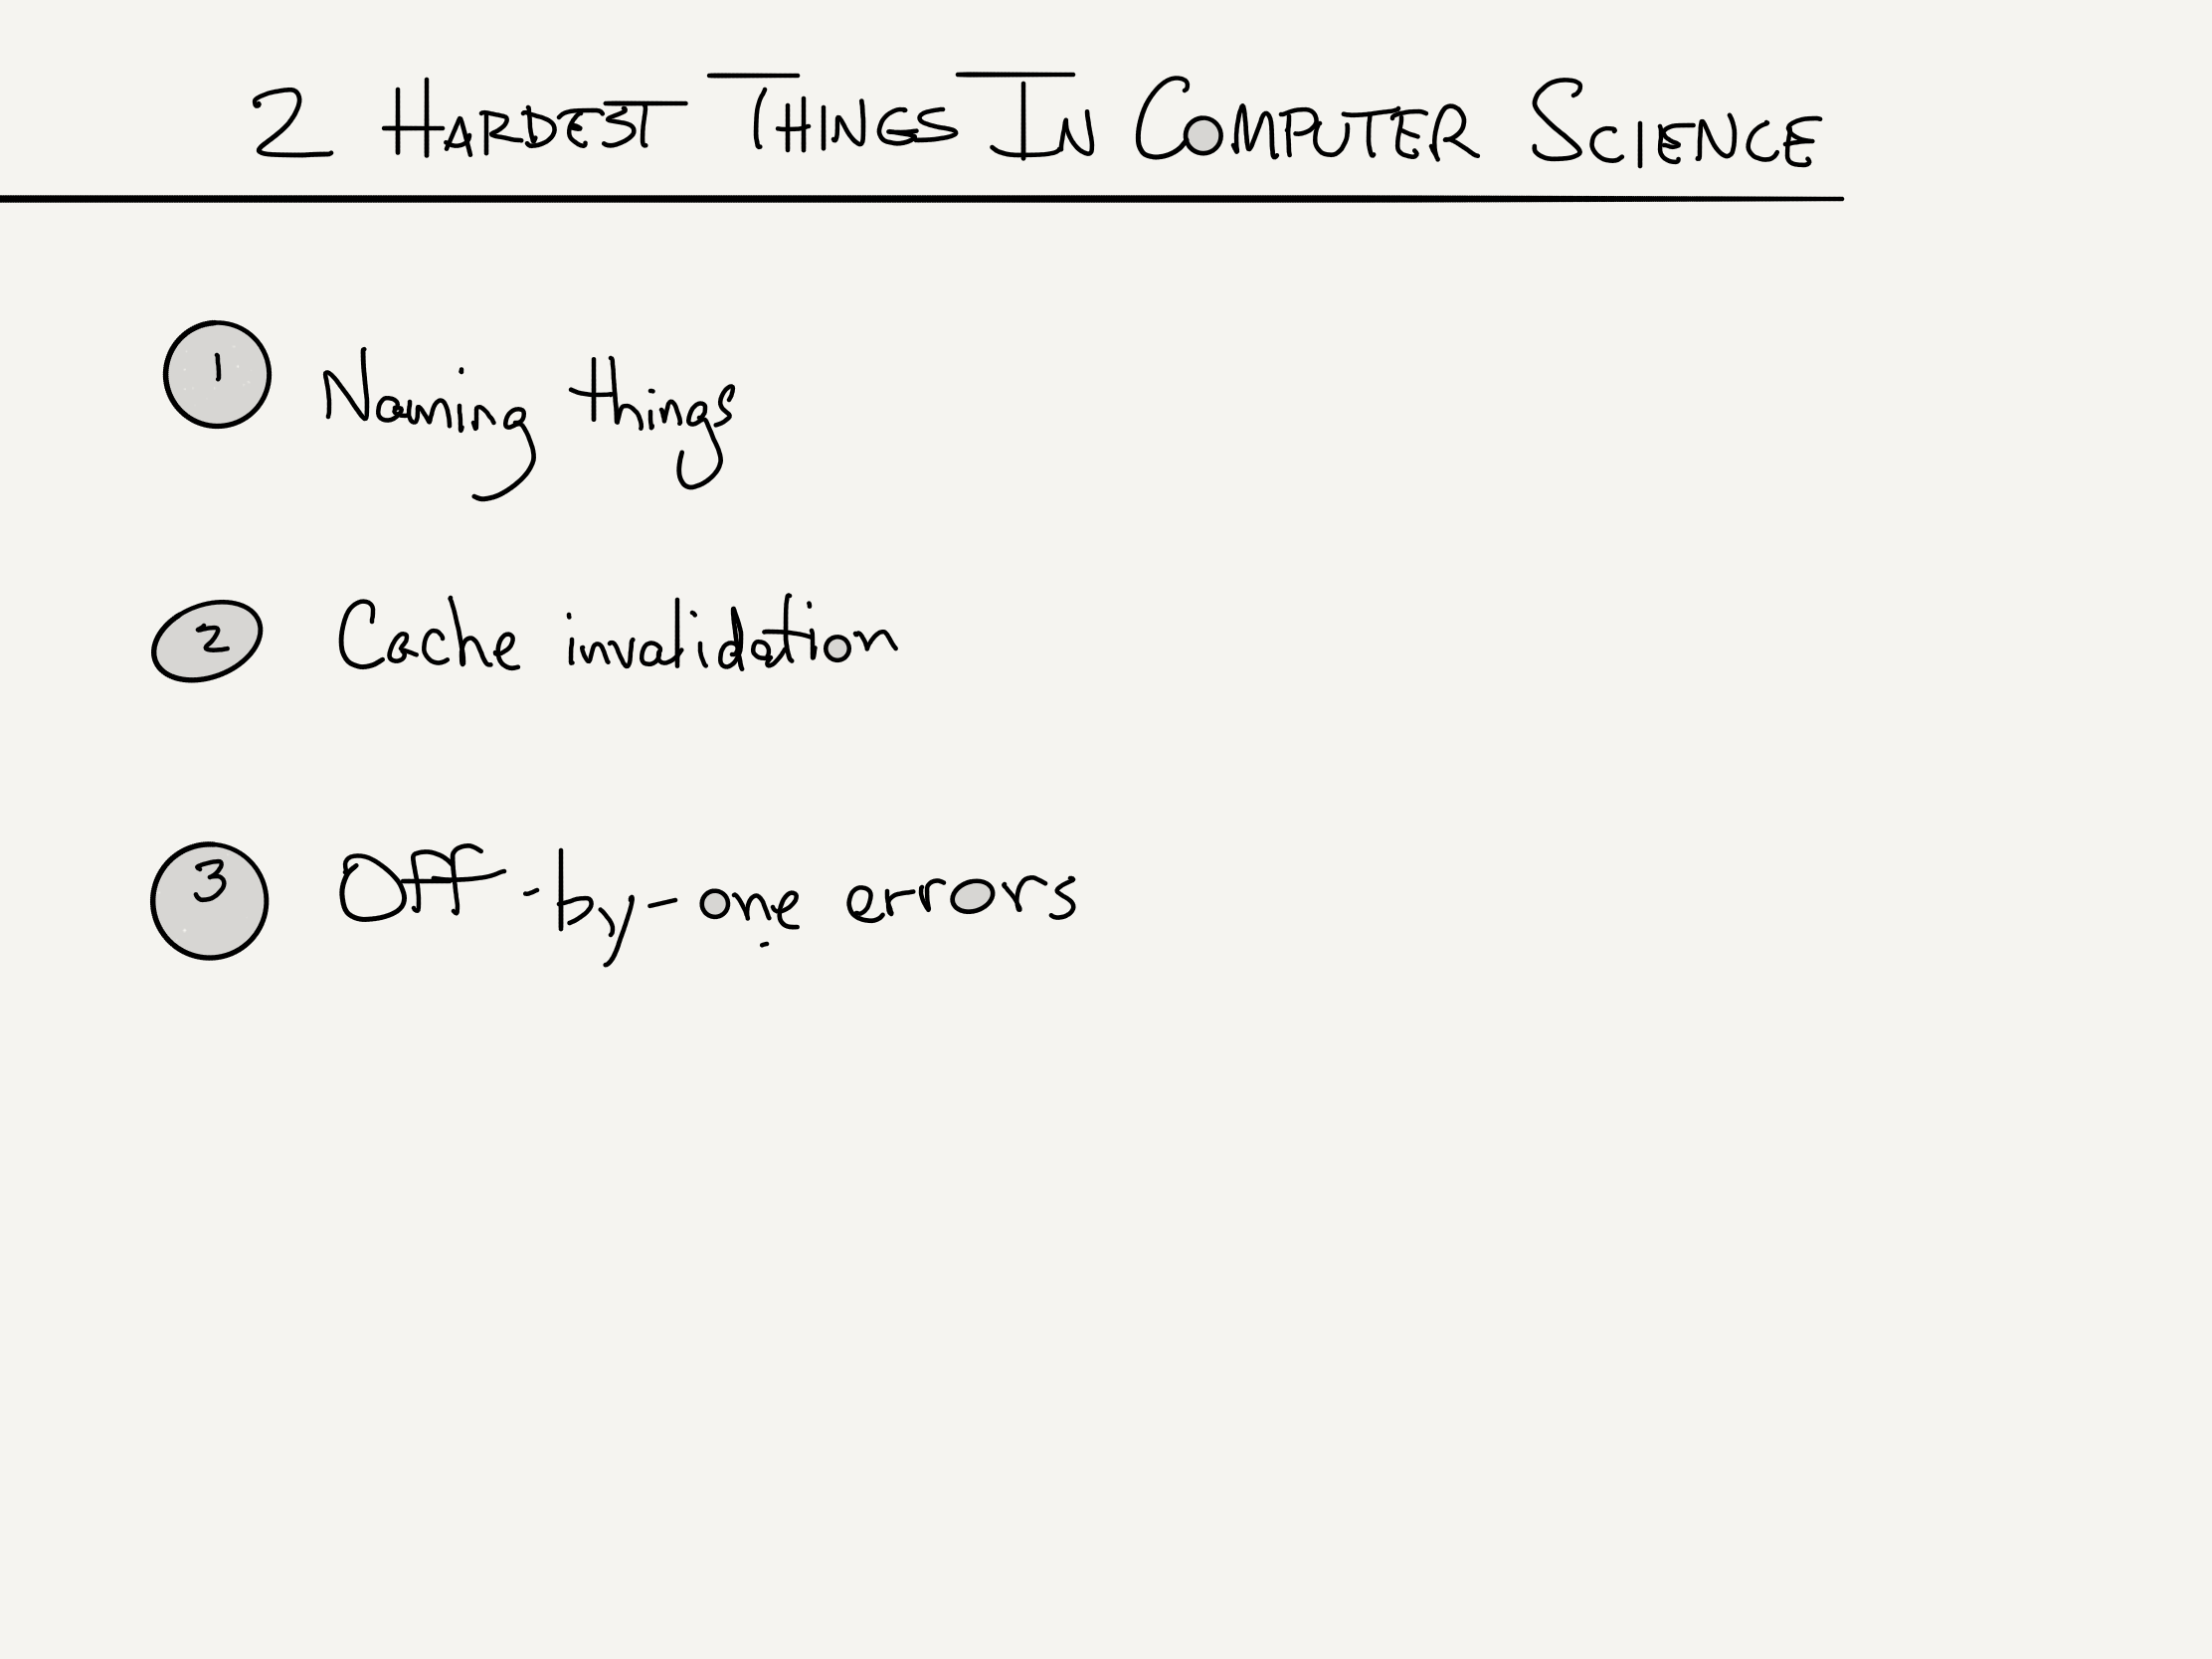 2 HARDEST THINGS IN COMPUTER SCIENCE
1 Naming things
2 Cache invalidation
3 Off-by-one errors